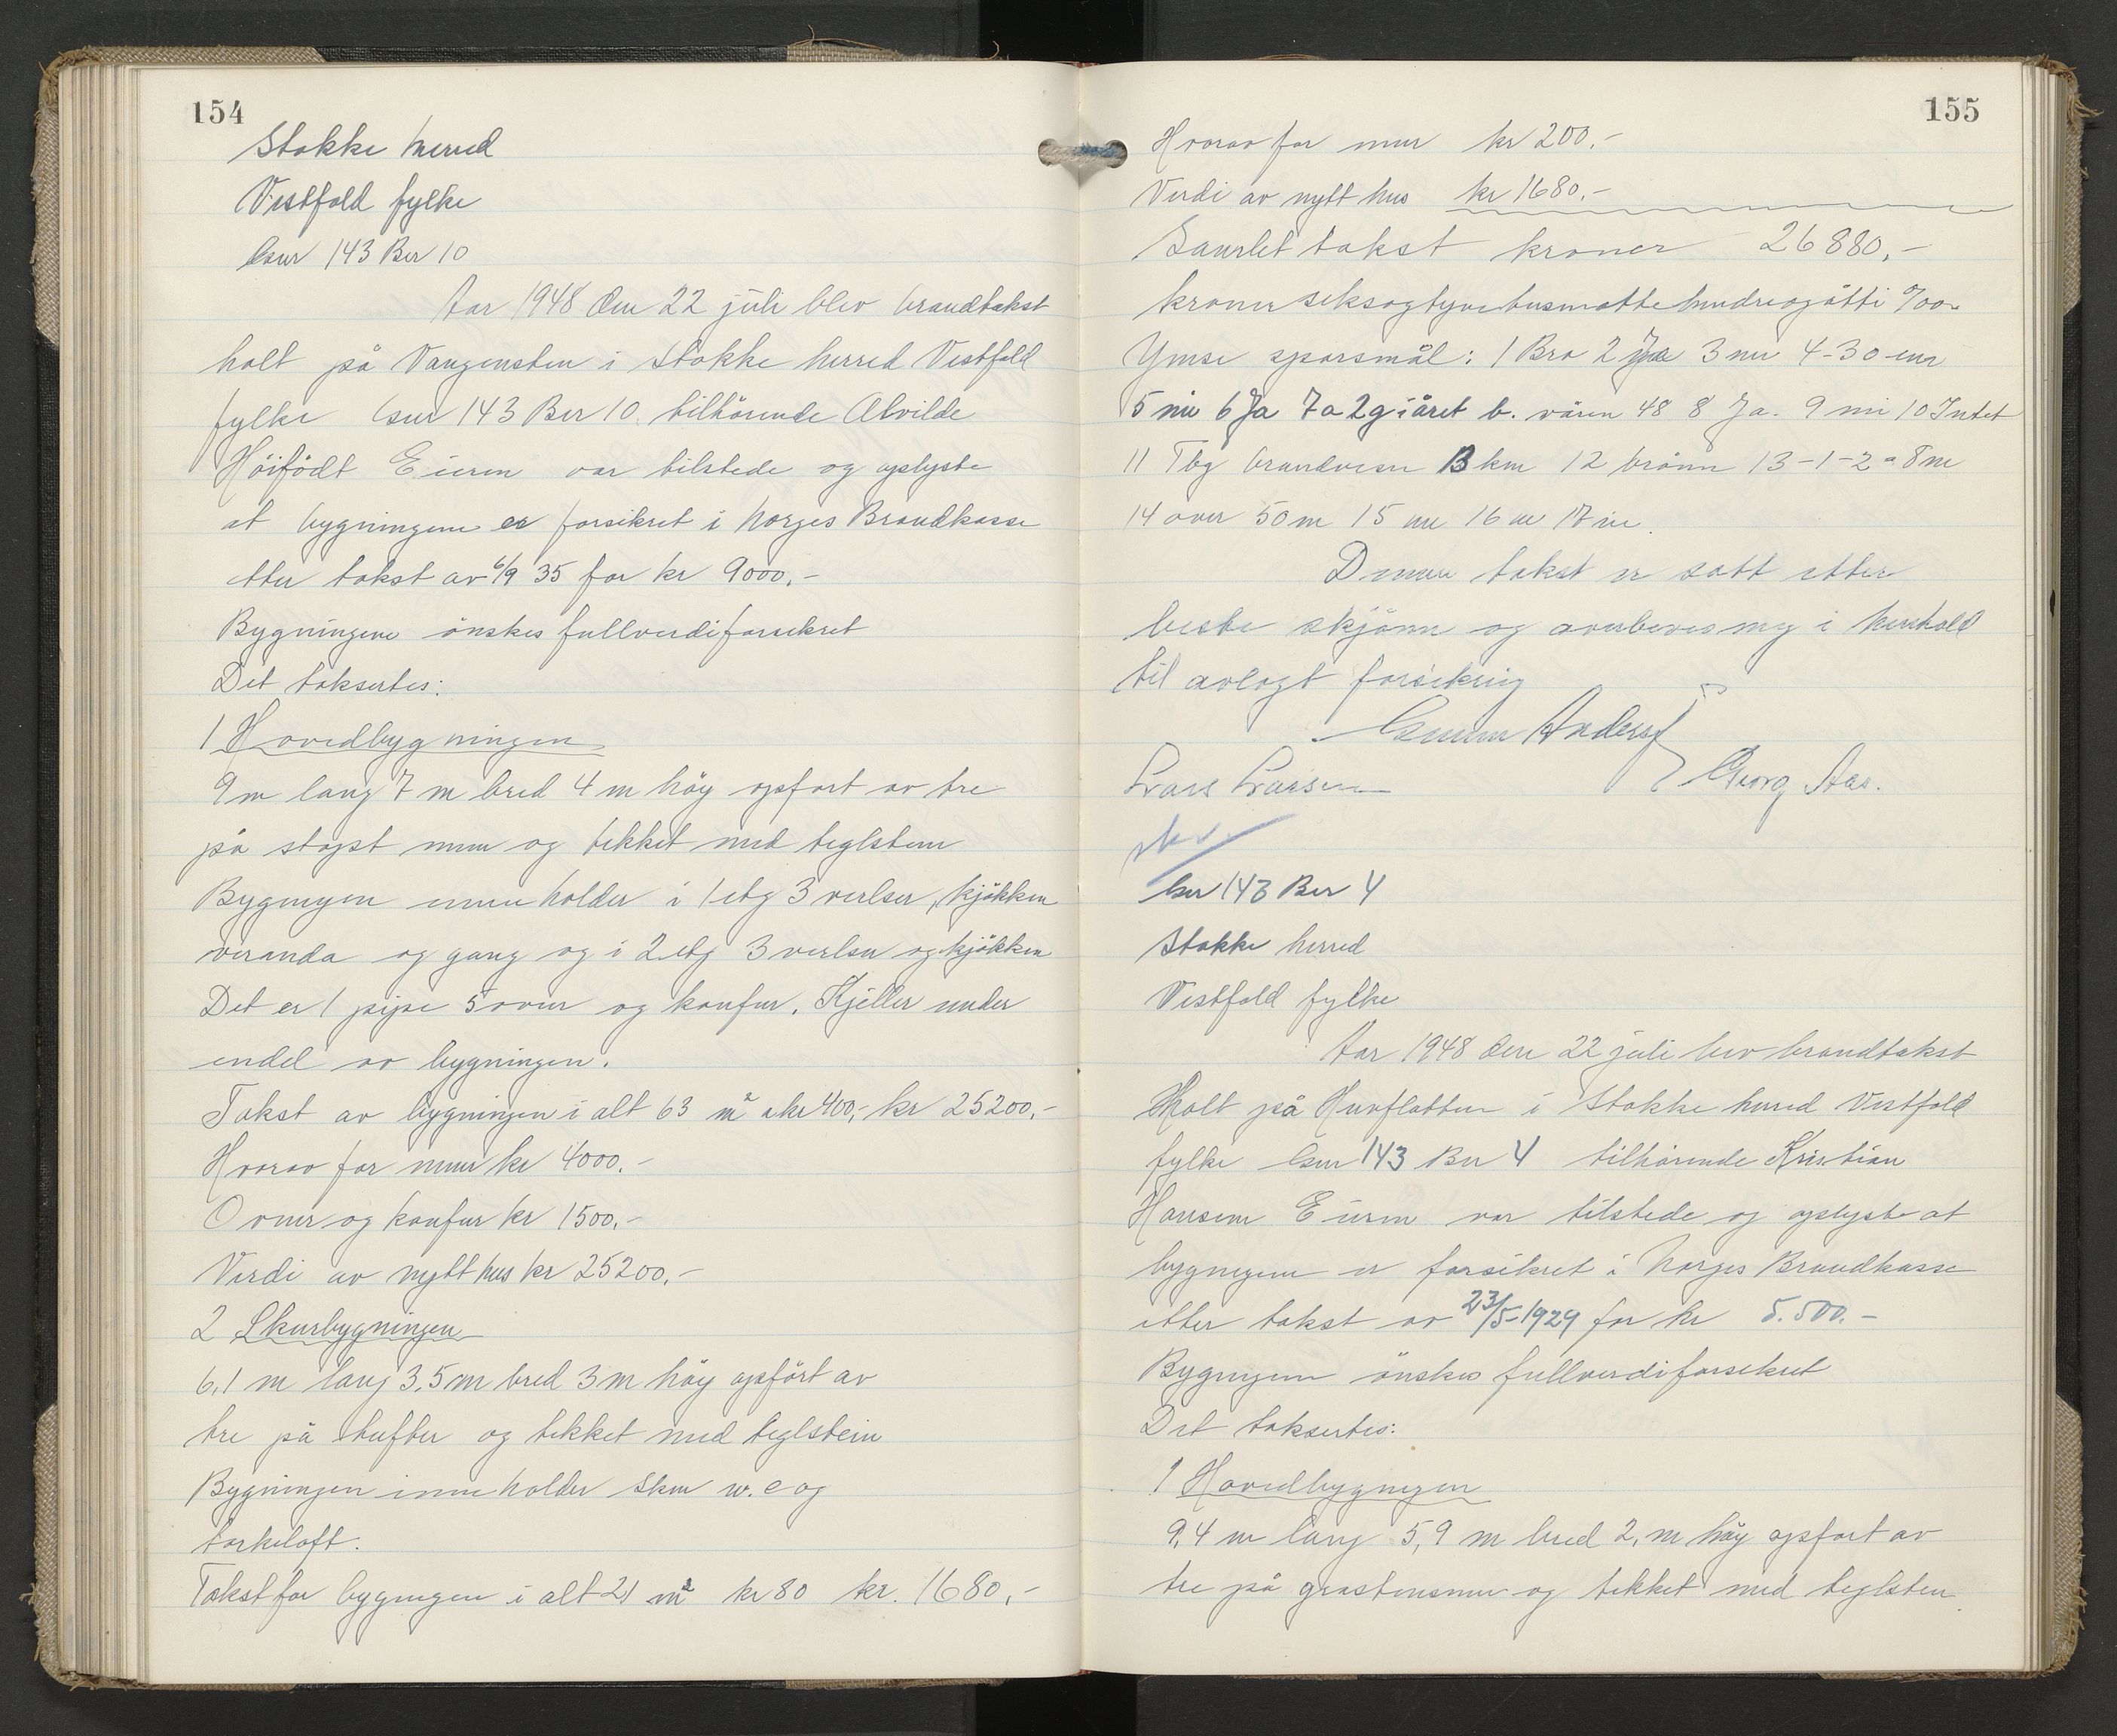 154
Stokke herred
Vestfold fylke
Gnr 143 Bnr 10
Aar 1948 den 22 juli blev brandtakst
holt på Vangensten i Stokke herred Vestfold
fylke Gnr 143 Bnr 10. tilhörende Alvilde
Höifödt Eieren var tilstede og oplyste
at bygningene er forsikret i Norges Brandkasse
etter takst av 6/9 35 for kr 9000.-
Bygningene önskes fullverdiforsikret
Det taksertes:
1 Hovedbygningen
9 m lang 7 m bred 4 m höy opfört av tre
på stöpt mur og tekket med teglsten
Bygningen inneholder i 1 etg 3 verlser, kjökken
veranda og gang og i 2 etg 3 verlser og kjökken
Det er 1 pipe 5 ovner og komfur. Kjeller under
endel av bygningen.
Takst av bygningen i alt 63 m² a kr 400,- kr 25200,-
Hvorav for mur kr 4000.-
Ovner og komfur kr 1500.-
Verdi av nytt hus kr 25200.-
2 Skurbygningen
6,1 m lang 3,5 m bred 3 m höy opfört av
tre på tufter og tekket med teglstein
Bygningen inneholder skur w.c og
torkeloft.
Takst for bygningen i alt 21 m² kr 80 kr. 1680,-
155
Hvorav for mur kr 200.-
Verdi av nytt hus kr 1680.-
Samlet takst kroner 26880,-
kroner seksogtyvetusenottehundreogåtti 0/00
Ymse sporsmål: 1 Bra 2 Ja 3 nei 4-30-em
5 nei 6 Ja 7 a 2 g i året b. våren 48 8 Ja. 9 nei 10 Intet
11 Tbg brandvesen 13 km 12 brönn 13-1-2 a 8 m
14 over 50 m 15 nei 16 nei 17 nei.
Denne takst er satt etter
beste skjönn og overbevisning i henhold
til avlagt forsikring
Gunnar Anders
Lars Larsen Georg Aas.
Gnr 143 Bnr 4
Stokke herred
Vestfold fylke
Aar 1948 den 22 juli blev brandtakst
Holt på i Stokke herred Vestfold
fylke Gnr 143 Bnr 4 tilhörende Kristian
Hansen Eieren var tilstede og oplyste at
bygningene er forsikret i Norges Brandkasse
etter takst av 23/5-1929 for kr 5.500.-
Bygningene önskes fullverdiforsikret
Det taksertes:
1 Hovedbygningen
9,4 m lang 5,9 m bred 2, m höy opfört av
tre på gråstensmur og tekket med teglsten.